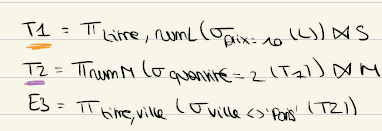 T1 = Π titre, numL (σ prix = 10 (L) ⋈ S
T2 = Π numM (σ quantité = 2 (T1) ⋈ M
E3 = Π titre, ville (σ ville <> 'Paris' (T2))